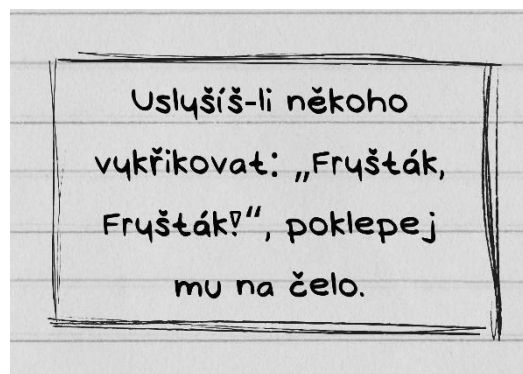 Uslyšíš-li někoho
vykřikovat: „Fryšták,
Fryšták!“, poklepej
mu na čelo.